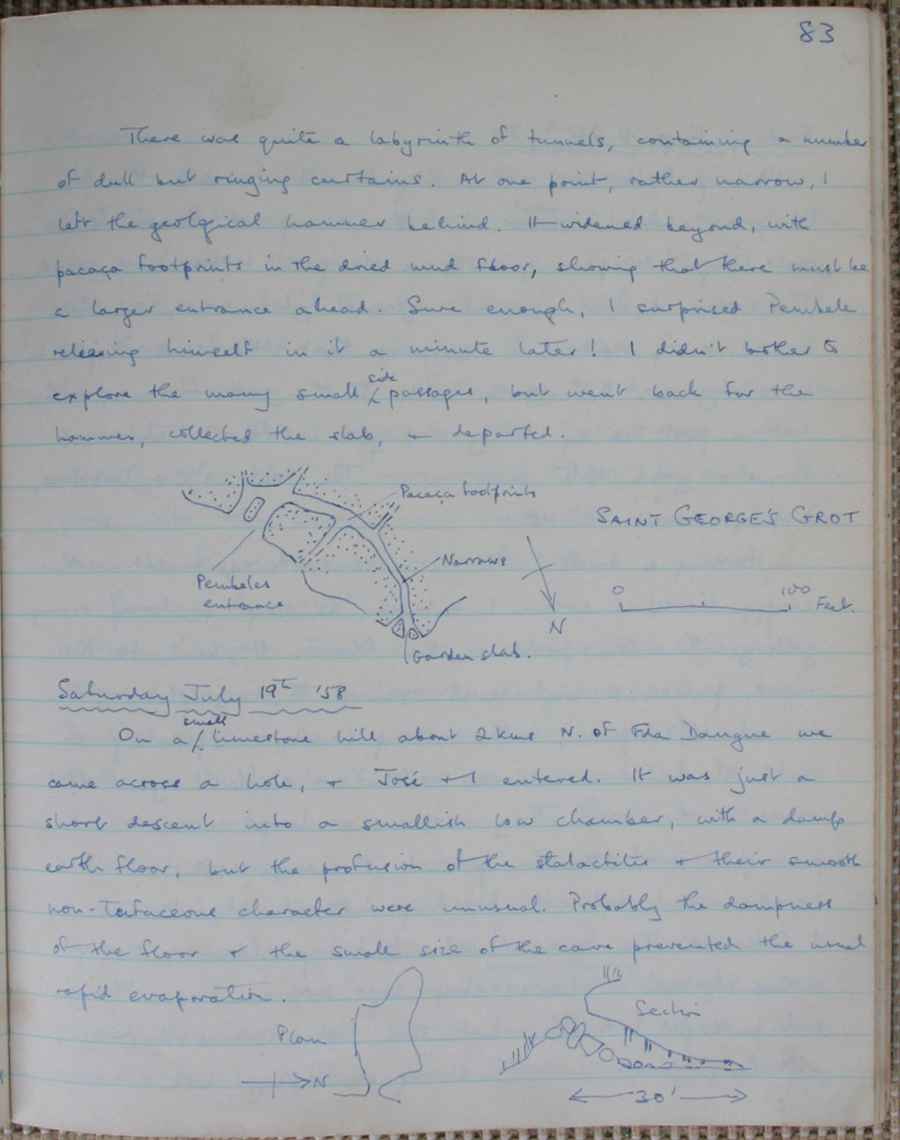 83
There was quite a labyrinth of tunnels, containing a number
of dull but ringing curtains. At one point, rather narrow, I
left the geolgical hammer behind. It widened beyond, with
pacaça footprints in the dried mud floor, showing that there must be
a larger entrance ahead. Sure enough, I surprised Pembele
releasing himself in it a minute later! I didn't bother to
explore the many small side passages, but went back for the
hammer, collected the slab, & departed.
Pacaça footprints
SAINT GEORGE'S GROT
Narrows
Pembeles
entrance
0 100 Feet.
N
Garden slab.
Saturday July 19th '58
On a small limestone hill about 2 kms N. of Fda Dangue we
came across a hole, & José & I entered. It was just a
short descent into a smallish low chamber, with a damp
earth floor, but the profusion of the stalactites & their smooth
non-Tufaceous character were unusual. Probably the dampness
of the floor & the small size of the cave prevented the usual
rapid evaporation.
Section
Plan
N
30'